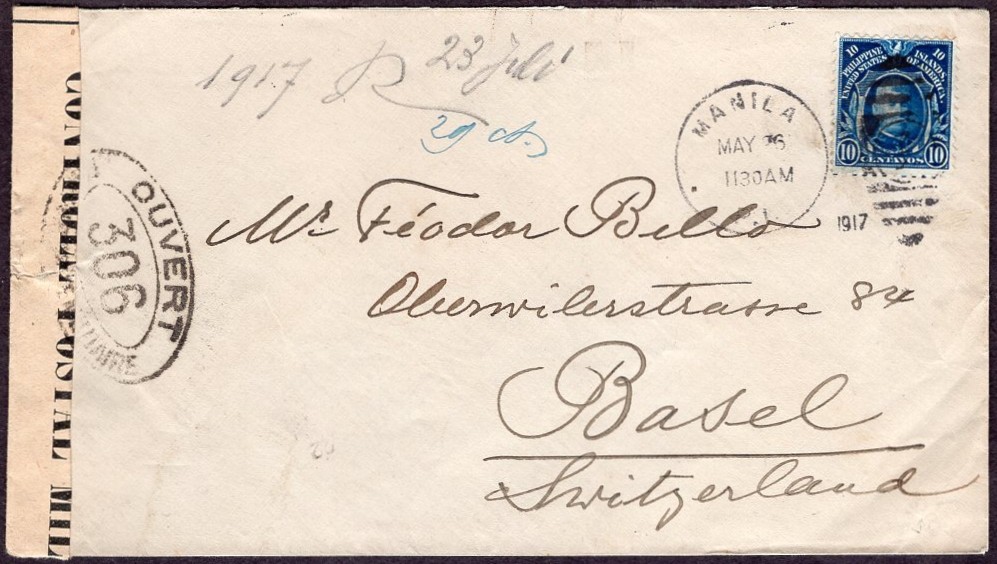 1917 23 Juli
29 ct.
MANILA
MAY 26
1130AM
1917
10 10
PHILIPPINE ISLANDS
UNITED STATES OF AMERICA
10 CENTAVOS 10
Mr Féodor Bells
Oberwilerstrasse 84
Basel
Switzerland
OUVERT
306
POSTAL MIL